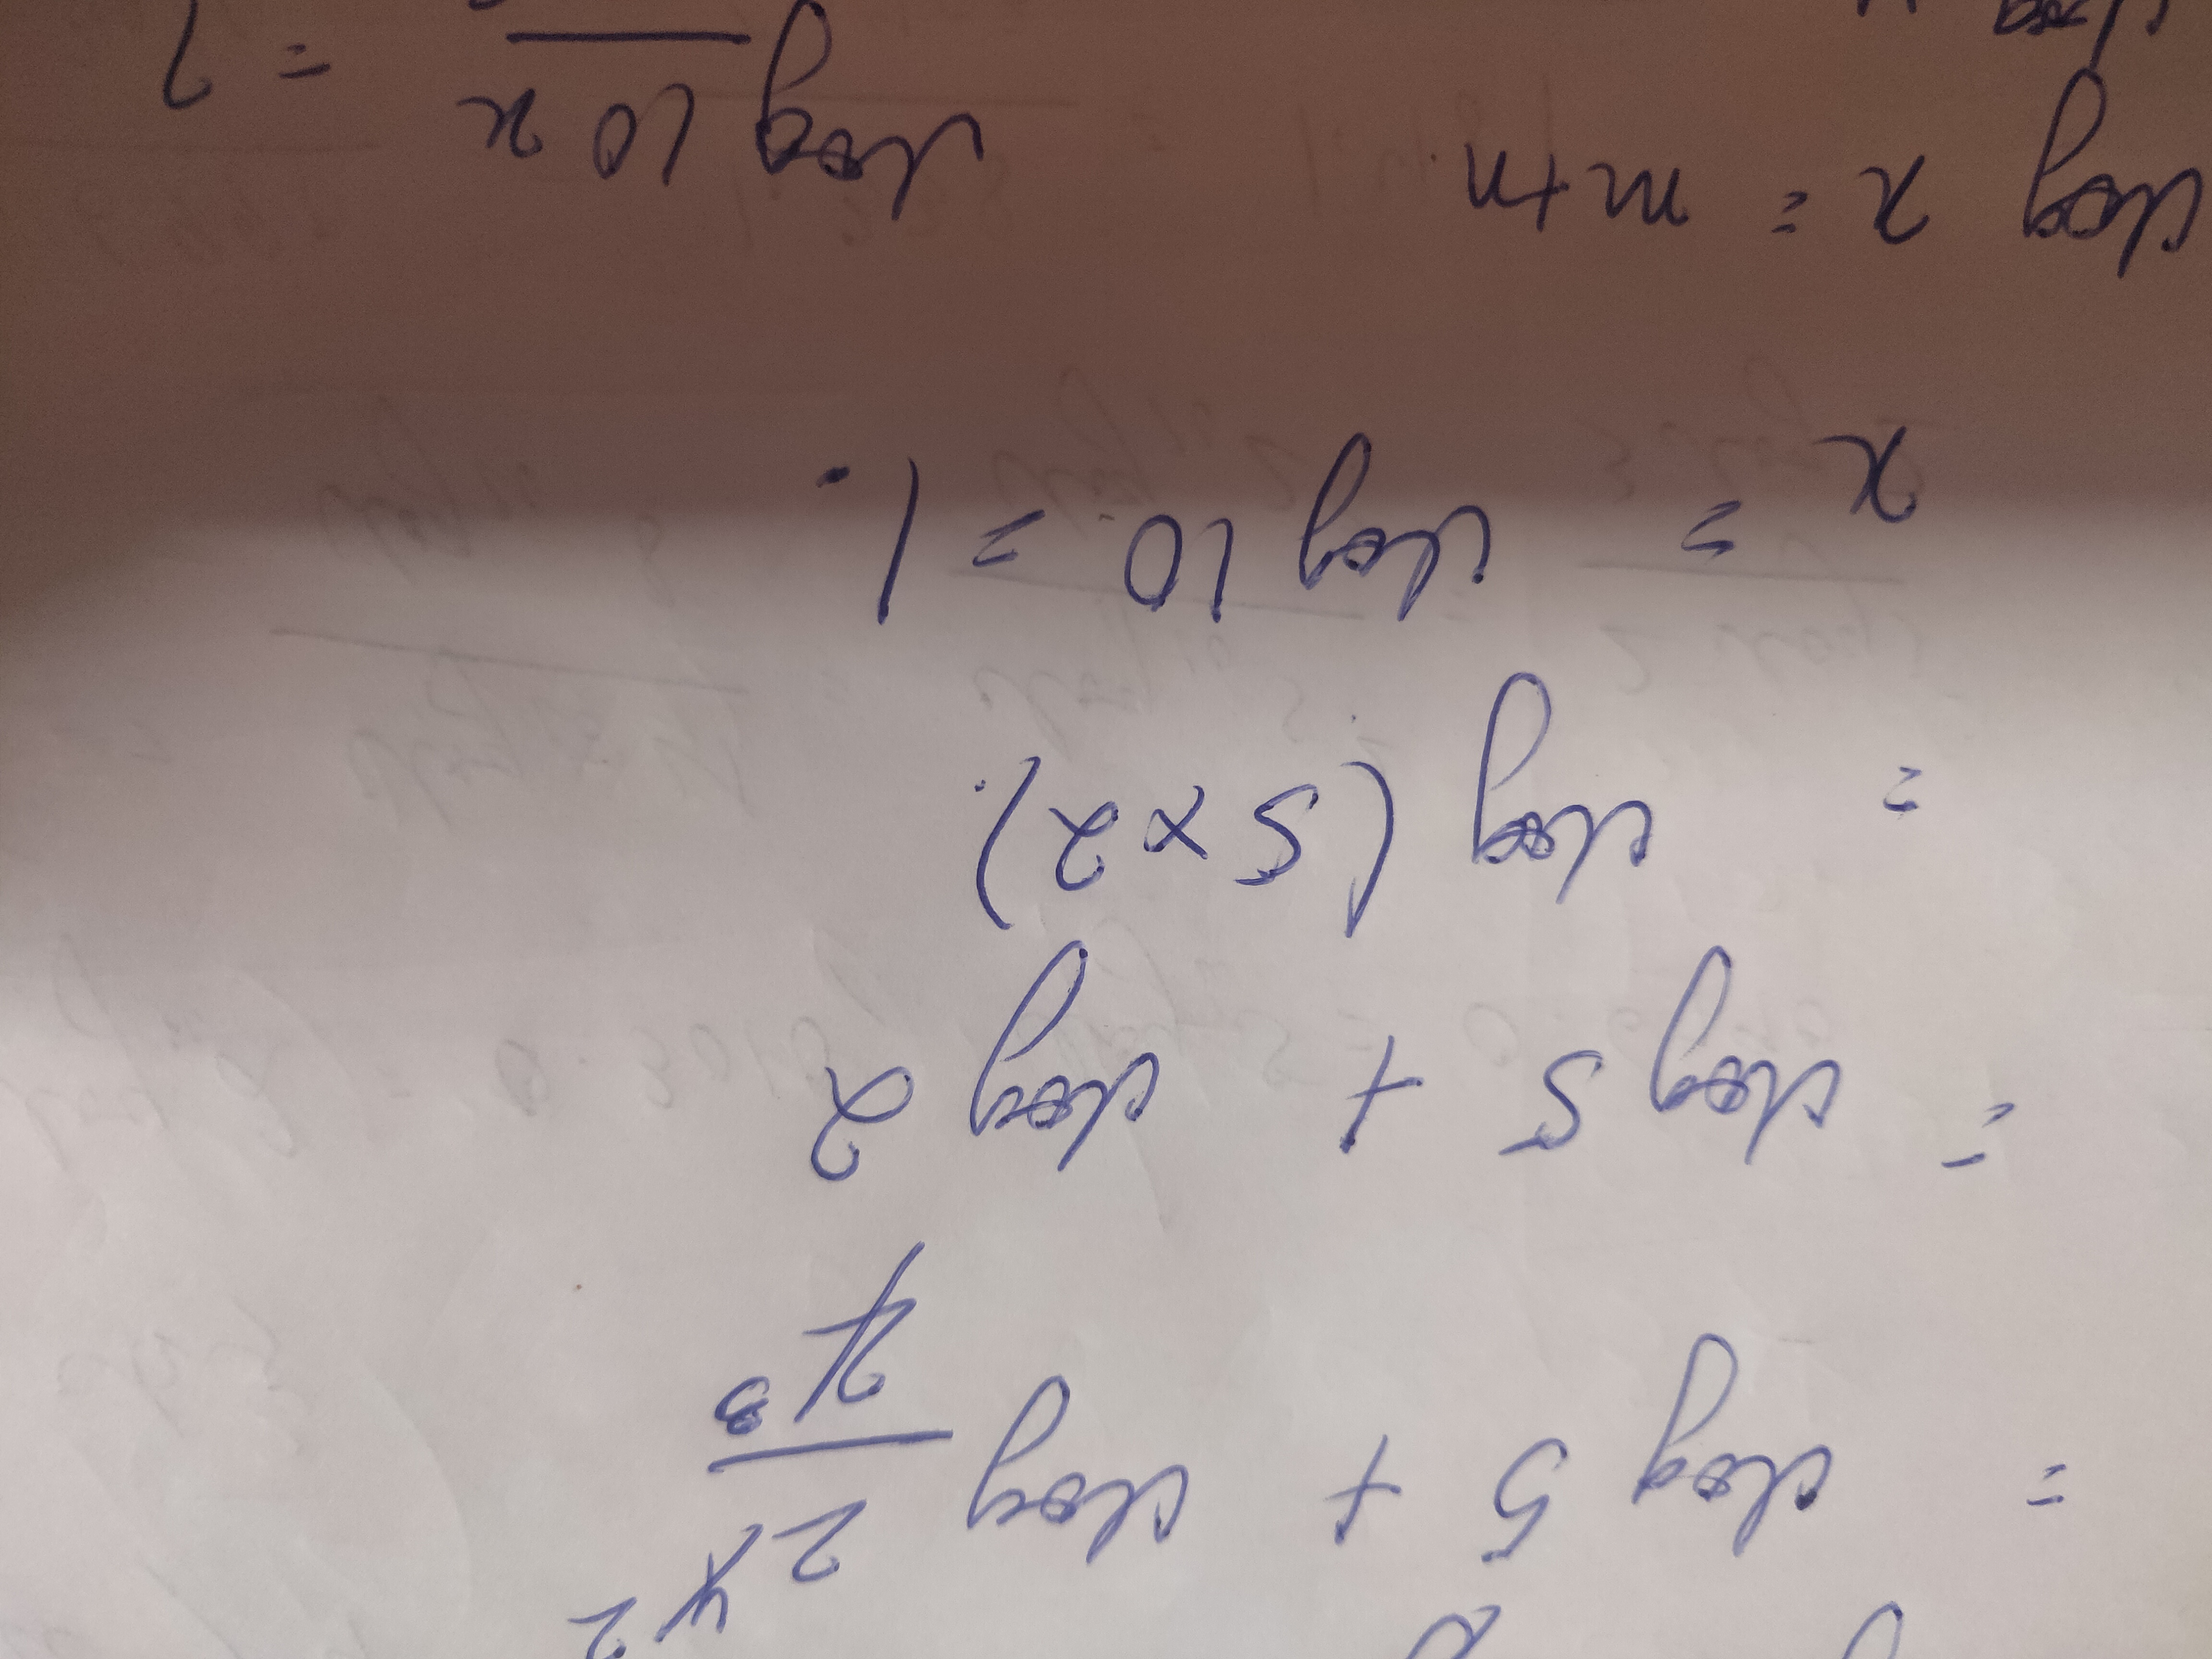 = log 5 + log 2^4 / 2^3
= log 5 + log 2
= log (5×2).
x = log 10 = 1.
log x = m+n log 10 x =